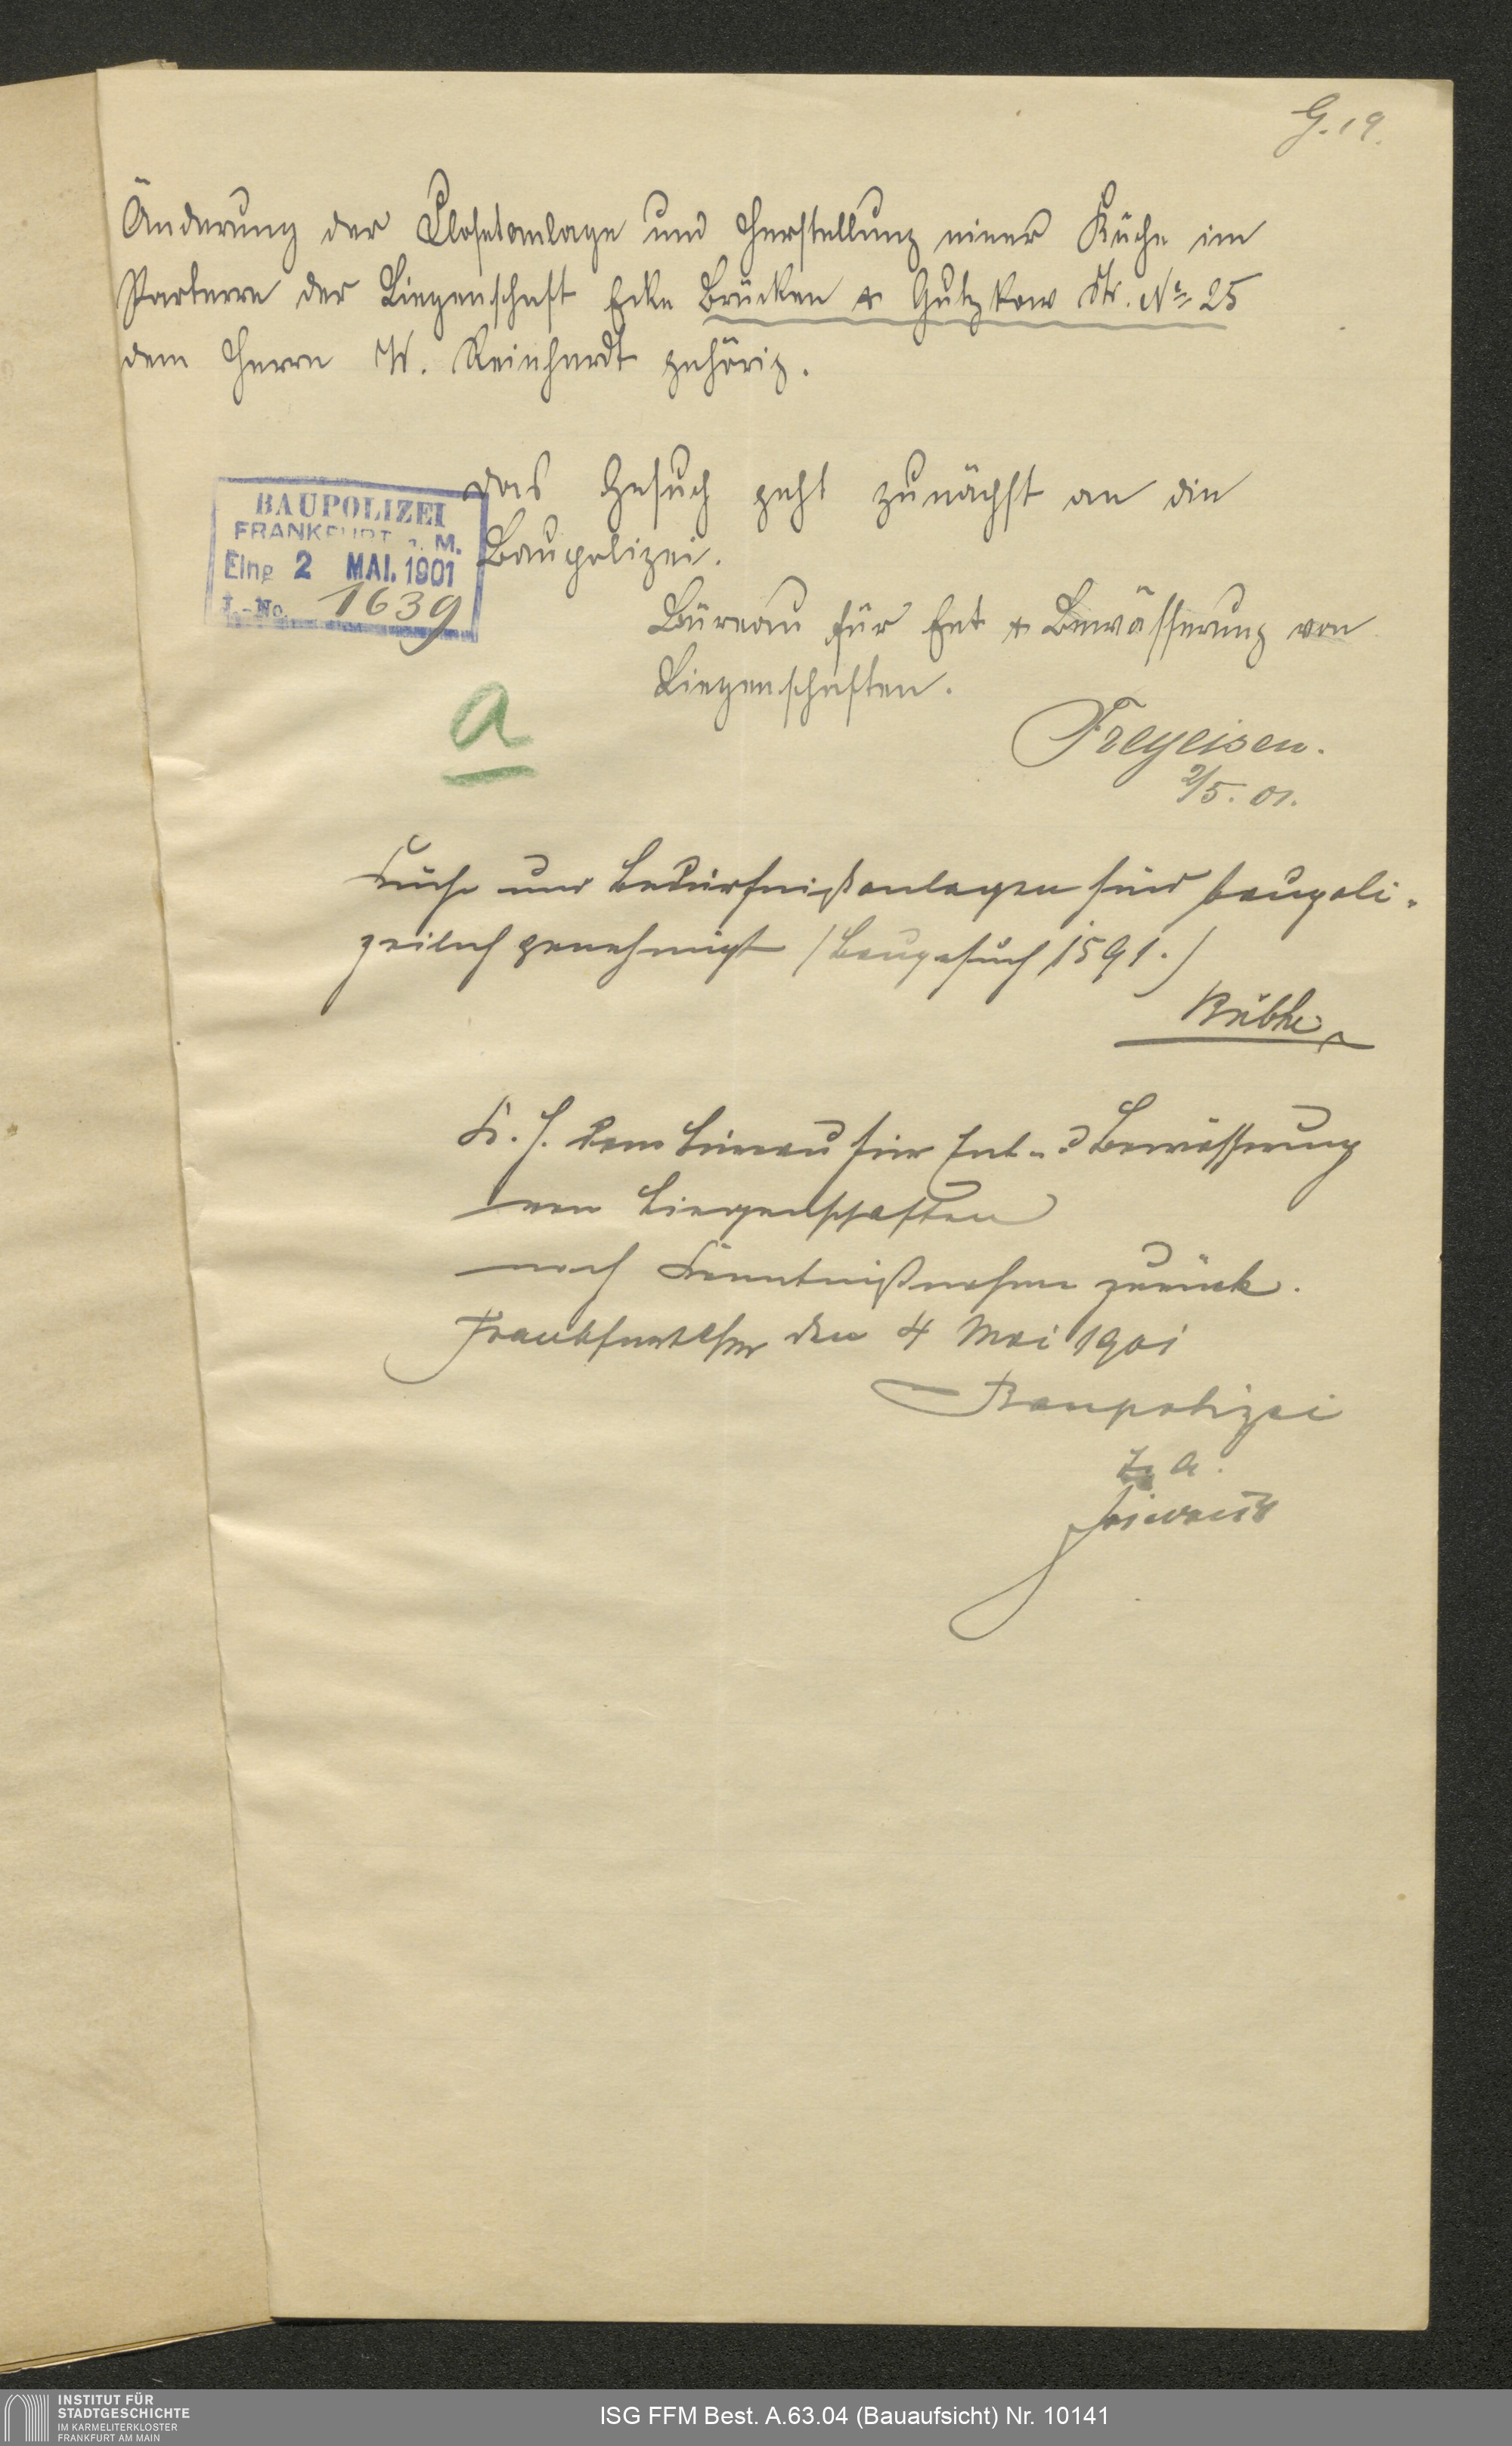 G. 19.
Änderung der Closetanlage und Herstellung einer Küche im
Parterre der Liegenschaft Ecke Brücken & Gutzkow Str. No 25
dem Herrn W. Reinhardt gehörig.
BAUPOLIZEI
FRANKFURT a. M.
Eing 2 MAI. 1901
J.-No. 1639
Das Gesuch geht zunächst an die
Baupolizei.
Büreau für Ent & Bewässerung von
Liegenschaften.
a
Freyeisen.
2/5. 01.
Küche und Bedürfnißanlagen sind baupoli-
zeilich genehmigt (Baugesuch 1591.)
K. H. dem Büreau für Ent- u. Bewässerung
von Liegenschaften
nach Kenntnißnahme zurück.
Frankfurt a/M den 4 Mai 1901
Baupolizei
I. A.
INSTITUT FÜR
STADTGESCHICHTE
IM KARMELITERKLOSTER
FRANKFURT AM MAIN
ISG FFM Best. A.63.04 (Bauaufsicht) Nr. 10141